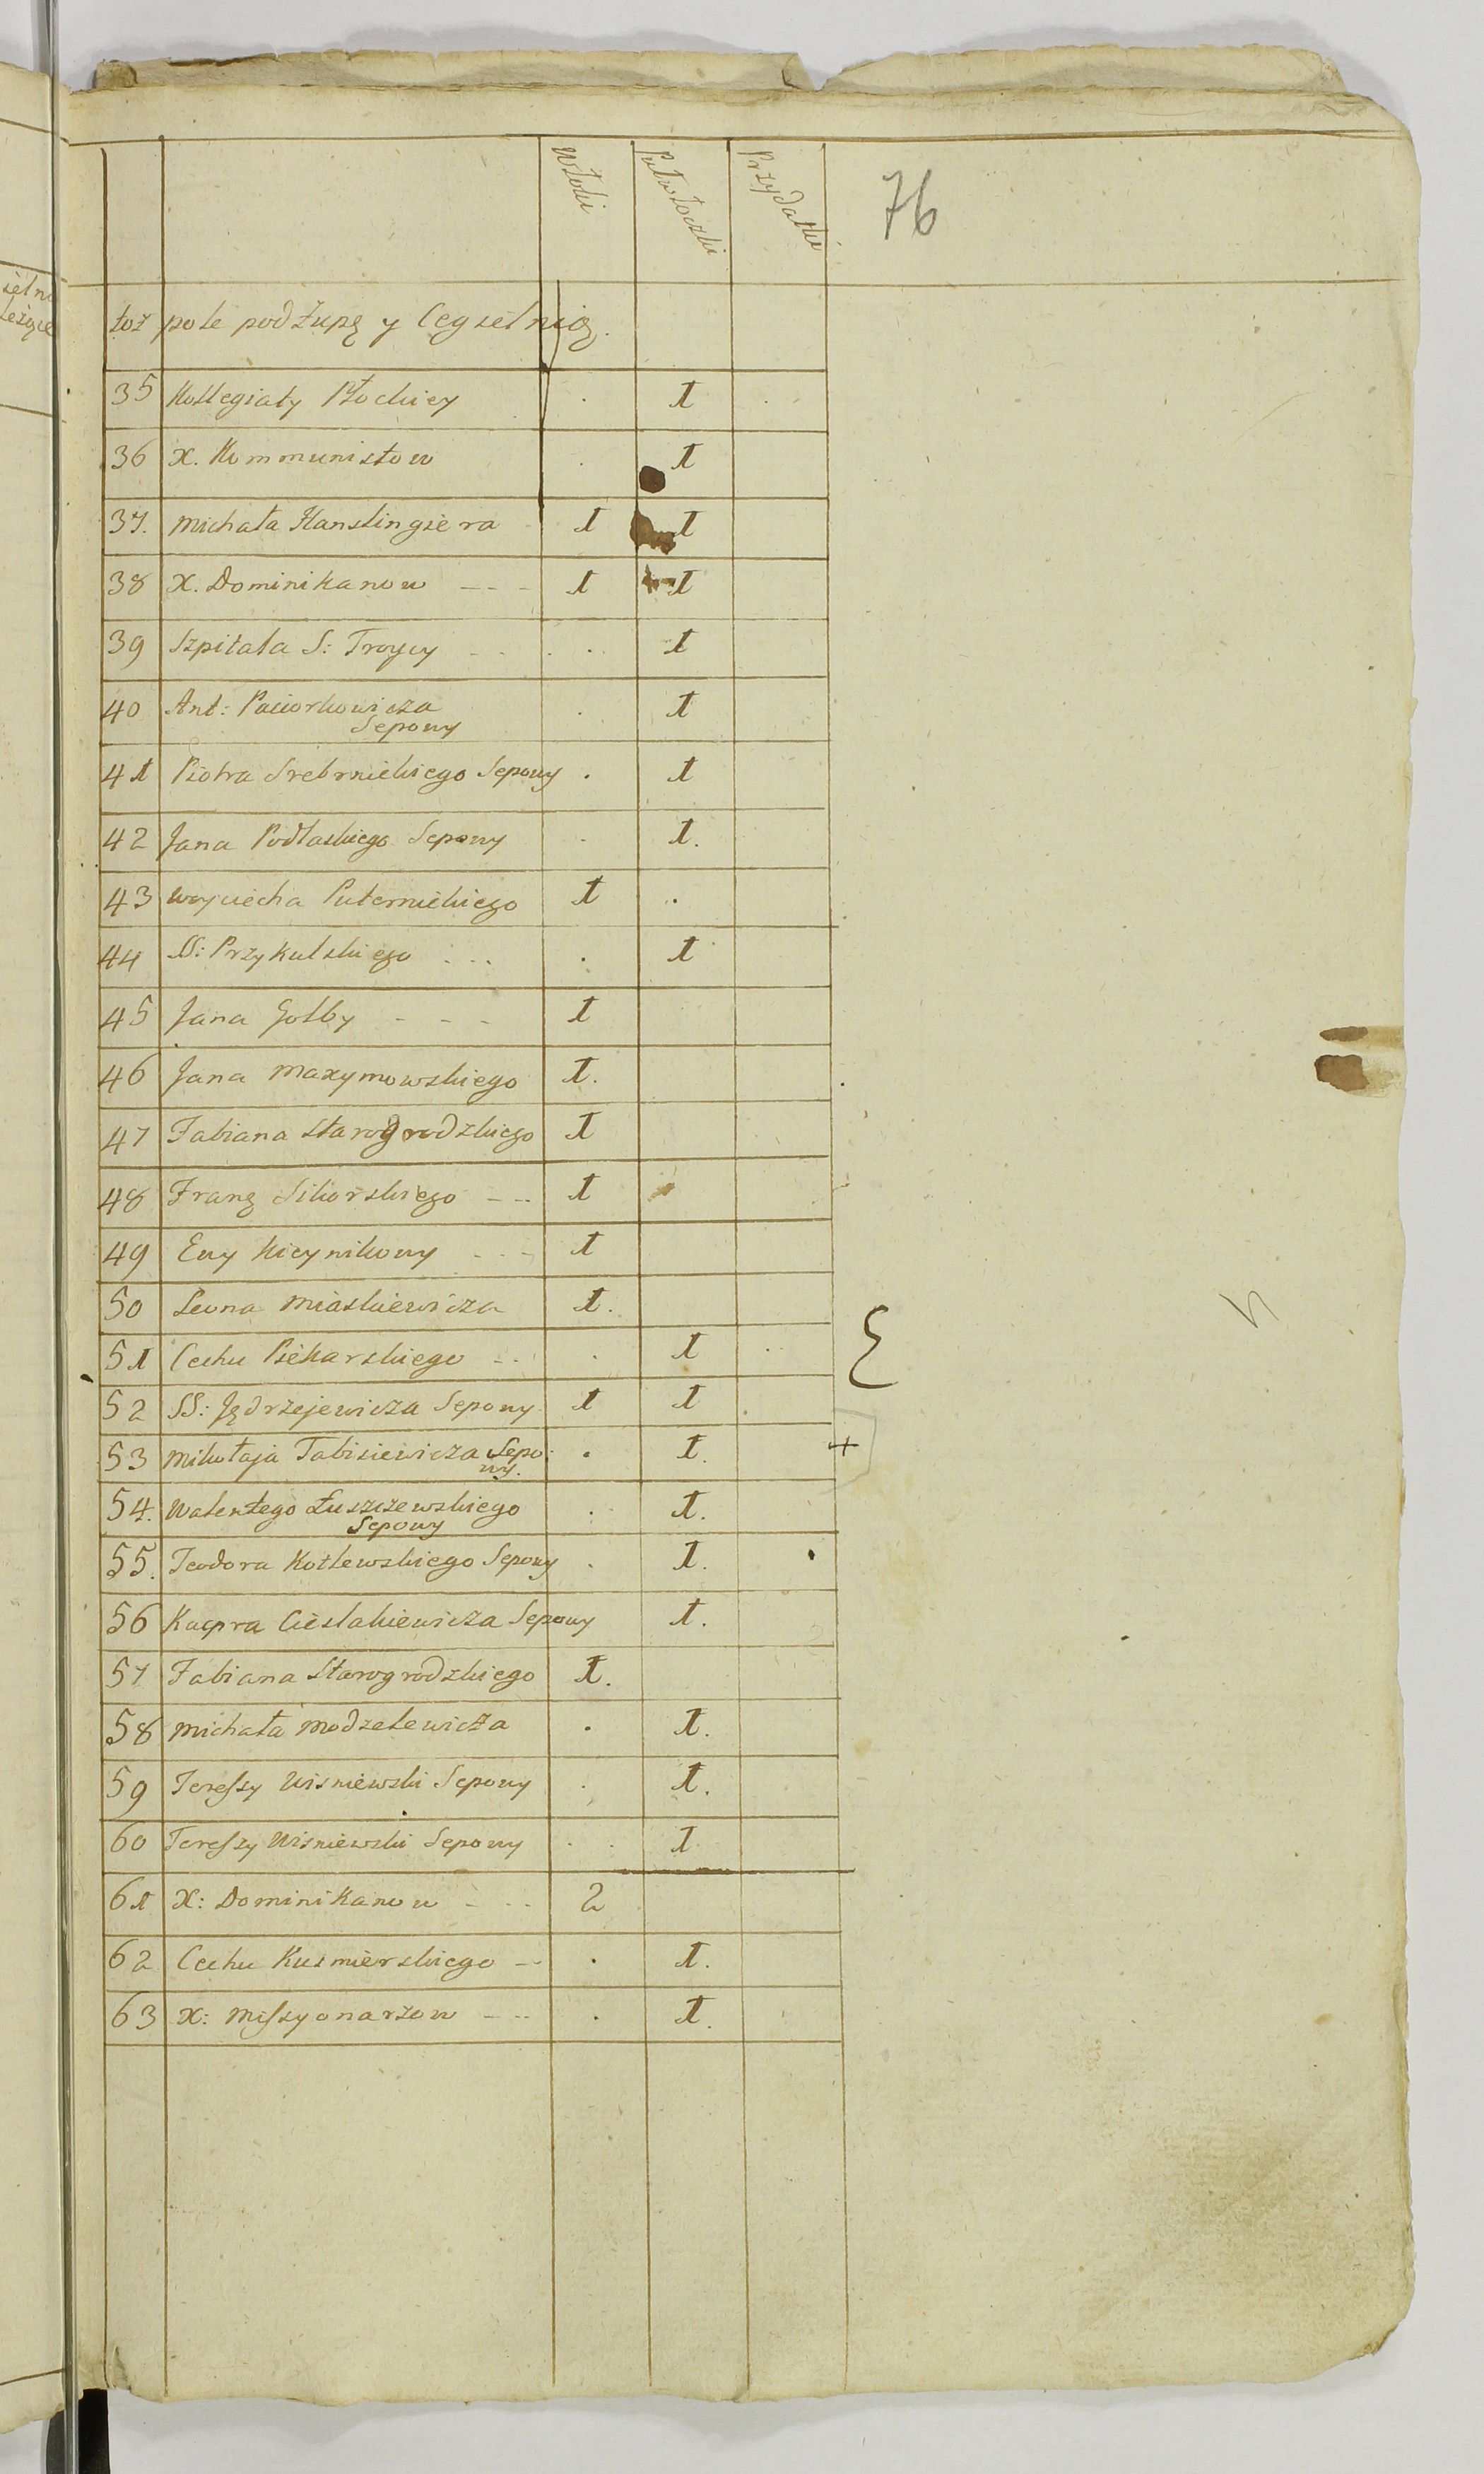 Włoki Puławłoczki Przydatki
76
toż pole pod Żupę y Cegielnią.
35 Kollegiaty Płockiey . 1 .
36 X. Kommunistow . 1
37. Michała Hanslingiera 1 1
38 X. Dominikanow --- 1 1
39 Szpitala S: Troycy -- . . 1
40 Ant: Paciorkowicza . 1
Sepowy
41 Piotra Srebrnickiego Sepowy . 1
42 Jana Podlaskiego Sepowy . 1.
43 Woyciecha Puternickiego 1 .
44 SS: Przykulskiego ... . 1
45 Jana Golby - - - 1
46 Jana Maxymowskiego 1.
47 Fabiana Starogrodzkiego 1
48 Franç Sikorskiego --- 1
49 Ewy Kicynikowy --- 1
50 Leona Miaskiewicza 1.
51 Cechu Piekarskiego -- . 1 .
52 SS: Jędrzejewicza Sepowy 1 1 .
53 Mikołaja Tabisiewicza Sepo . 1. +
wy.
54. Walentego Łuszczewskiego . 1.
Sepowy
55. Teodora Kotlewskiego Sepowy . 1.
56 Kacpra Cieslakiewicza Sepowy 1.
57 Fabiana Starogrodzkiego 1.
58 Michała Modzelewicza . 1.
59 Terefsy Wisniewski Sepowy . 1.
60 Terefsy Wisniewski Sepowy . . 1
61 X: Dominikanow - -- 2
62 Cechu Kusmierskiego -- . 1.
63 X: Mifsyonarzow --- . 1.